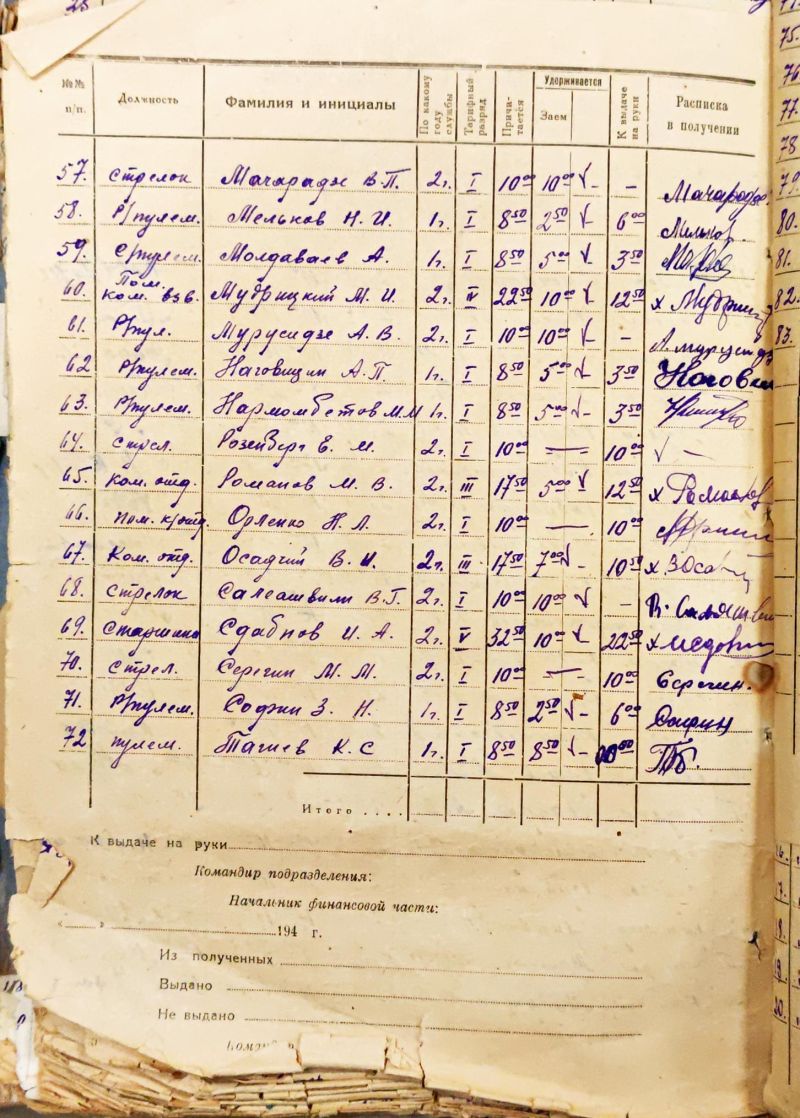 №№ п/п. Должность Фамилия и инициалы По какому году службы Тарифный разряд Причитается Удерживается Заем К выдаче на руки Расписка в получении
57. стрелок Мачарадзе В.П. 2г. I 10 00 10 00 √ – –
58. Р/пулем. Мельков Н.И. 1г. I 8 50 2 50 √ 6 00
59. Р/пулем. Молдаваев А. 1г. I 8 50 5 00 √ 3 50
60. Пом. ком. взв. Мудрицкий М.И. 2г. IV 22 50 10 00 √ 12 50 х
61. Р/пул. Мурусидзе А.В. 2г. I 10 00 10 00 √ –
62 Р/пулем. Наговицин А.П. 1г. I 8 50 5 00 √ 3 50
63. Р/пулем. Нармомбетов М.М 1г. I 8 50 5 00 √ – 3 50
64. стрел. Розенберг Е. М. 2г. I 10 00 — 10 00 √ –
65. Ком. отд. Романов М. В. 2г. III 17 50 5 00 √ 12 50 х
66. пом. к/отд. Орленко Н.Л. 2г. I 10 00 — 10 00
67. Ком. отд. Осадчий В.И. 2г. III 17 50 7 00 √ – 10 50 х
68. Стрелок Салеашвили В.Г. 2г. I 10 00 10 00 √ –
69. Старшина Сдабнов И.А. 2г. V 32 50 10 00 √ 22 50 х
70. Стрел. Серегин М.М. 2г. I 10 00 — 10 00 Серегин.
71. Р/пулем. Софин З.Н. 1г. I 8 50 2 50 √ – 6 00 Софин
72 пулем. Тагиев К.С 1г. I 8 50 8 50 √ –
Итого ....
К выдаче на руки
Командир подразделения:
Начальник финансовой части:
« » 194 г.
Из полученных
Выдано
Не выдано
75.
76
77.
78
79
80.
81.
82.
83.